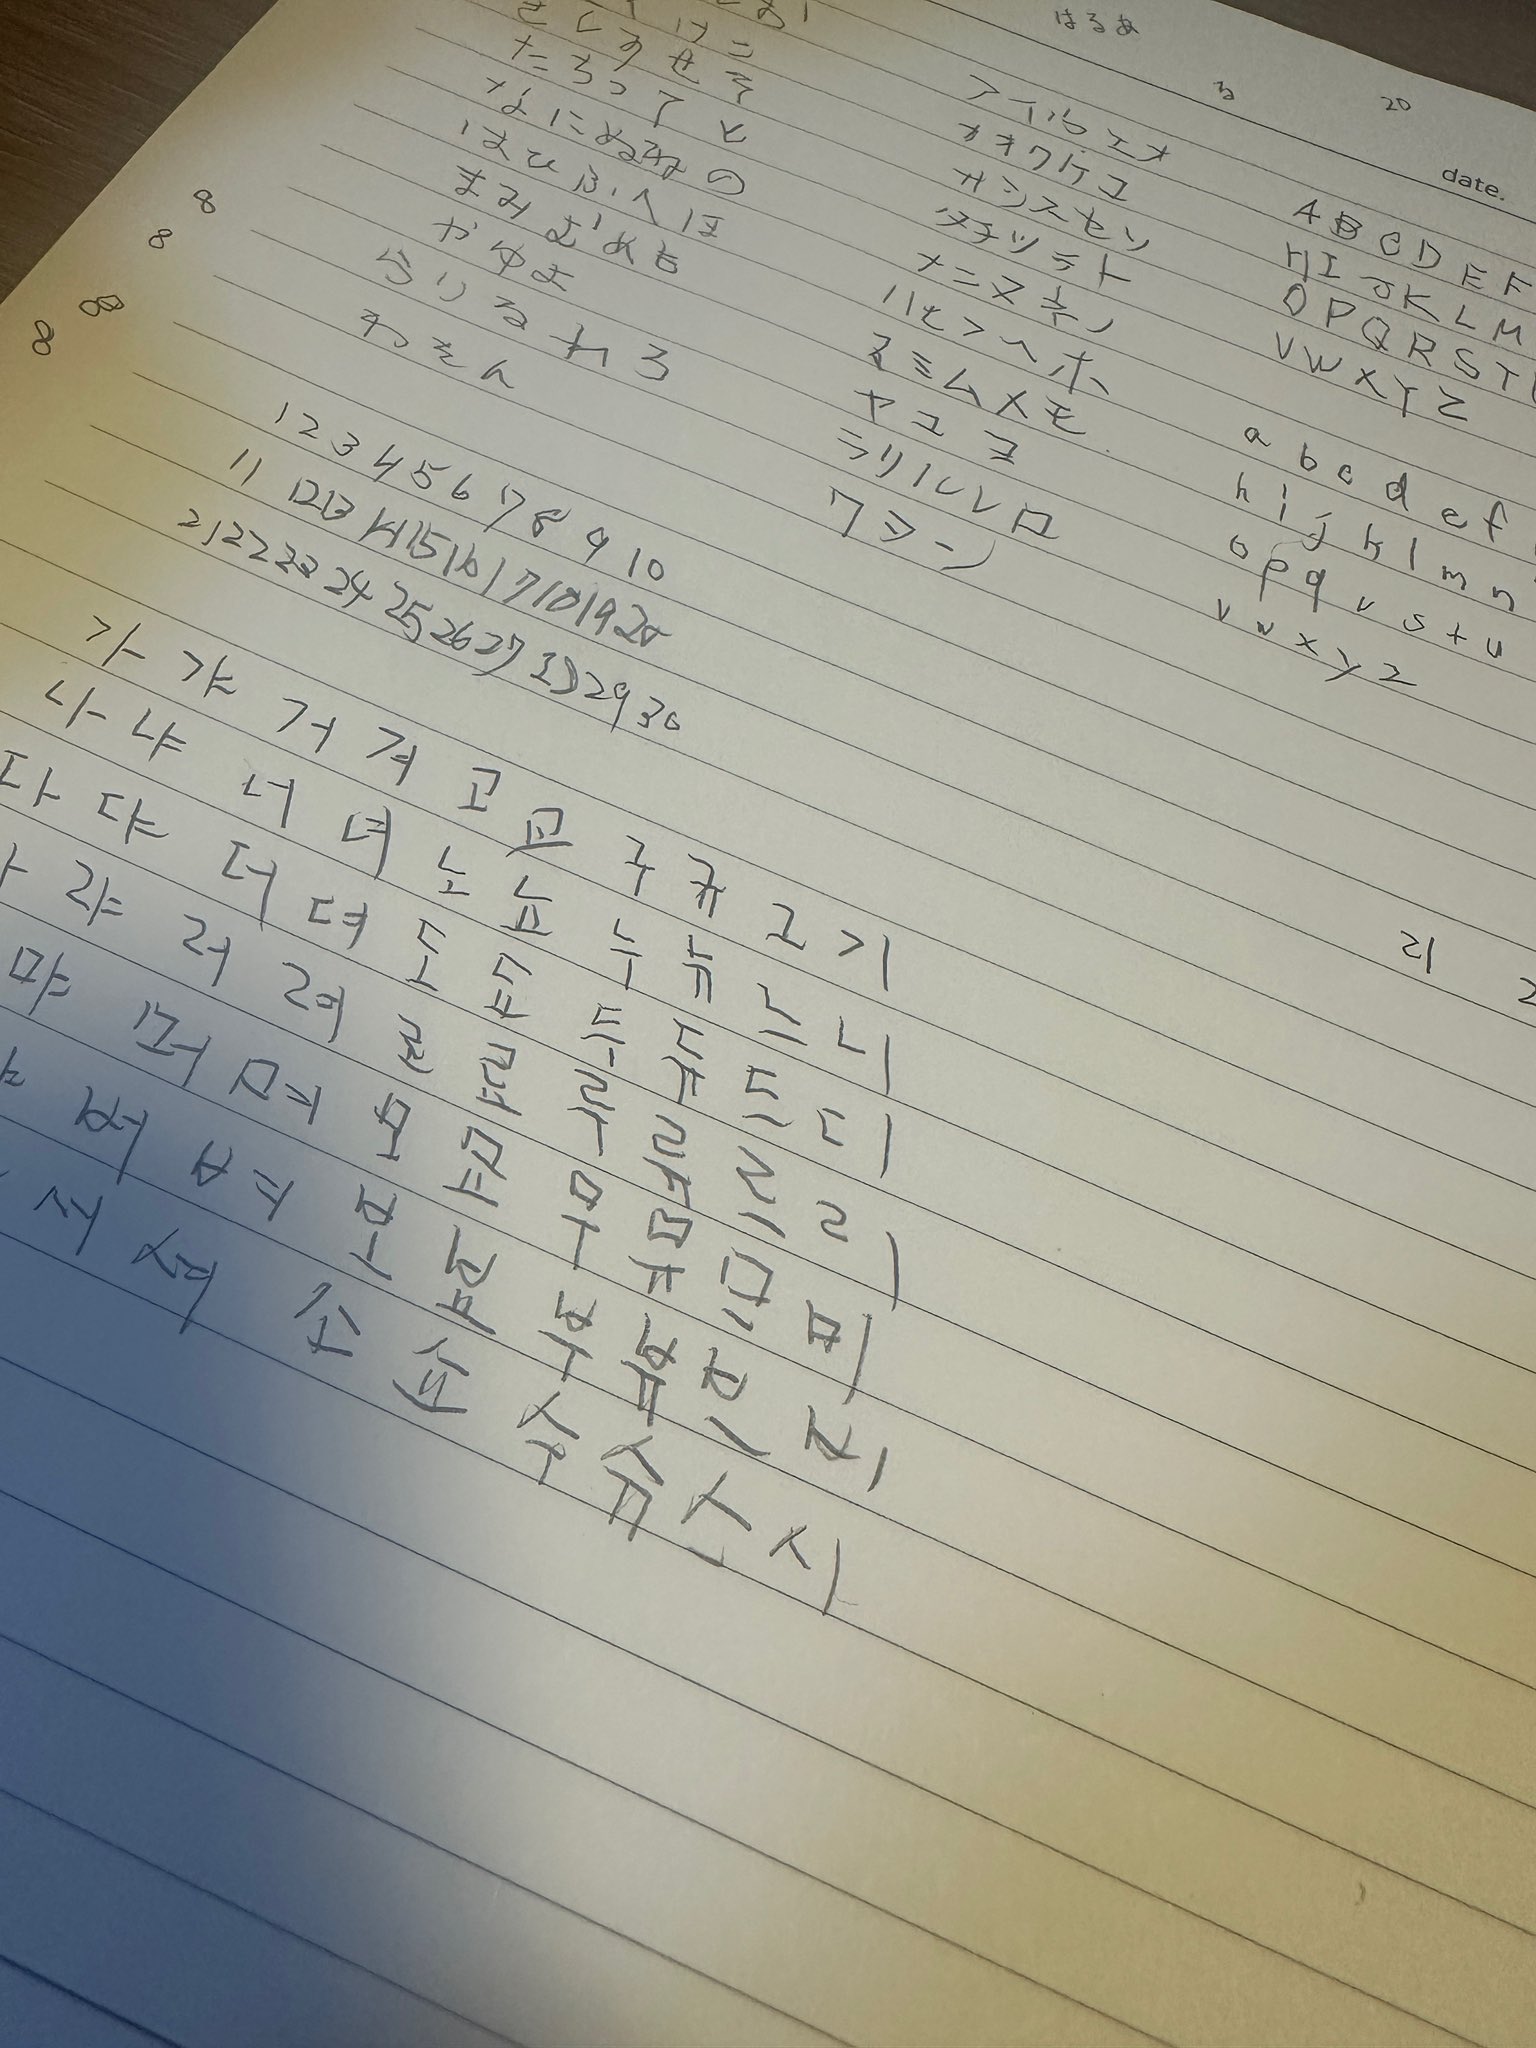 はるあ
る 20
date.
けこ
さしすせそ
たちつてと
なにぬねの
はひふへほ
まみむめも
やゆよ
らりるれろ
わをん
アイウエオ
カキクケコ
サシスセソ
タチツテト
ナニヌネノ
ハヒフヘホ
マミムメモ
ヤユヨ
ラリルレロ
ワヲーン
A B C D E F
H I J K L M
O P Q R S T
V W X Y Z
a b c d e f
h i j k l m n
o p q r s t u
v w x y z
8
8
8
8
1 2 3 4 5 6 7 8 9 10
11 12 13 14 15 16 17 18 19 20
21 22 23 24 25 26 27 29 30
가 갸 거 겨 고 교 구 규 그 기
나 냐 너 녀 노 뇨 누 뉴 느 니
다 댜 더 뎌 도 됴 두 듀 드 디
랴 러 려 로 료 루 류 르 리
먀 머 며 모 묘 무 뮤 므 미
버 벼 보 뵤 부 뷰 브 비
서 셔 소 쇼 수 슈 스 시
리